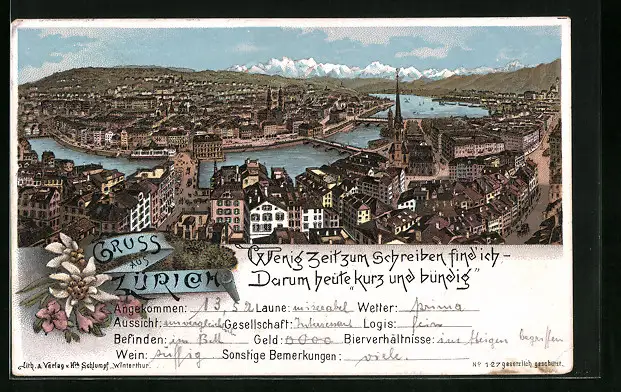 GRUSS
aus
ZÜRICH
Wenig Zeit zum Schreiben find' ich -
Darum heute "kurz und bündig"
Angekommen: 13,52 Laune: miserabel Wetter: prima
Aussicht: unvergleichlich Gesellschaft: Interessant Logis: fein
Befinden: im Bett Geld: 0000 Bierverhältnisse: zum Steigen begriffen
Wein: süffig Sonstige Bemerkungen: viele.
Lith. & Verlag v. Hch. Schlumpf, Winterthur.
No 127 gesetzlich geschützt.